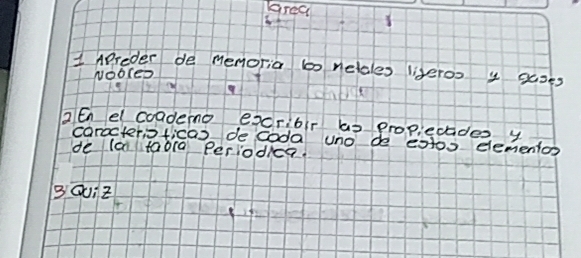 Tarea
1 Apreder de memoria los metales ligeros y gases
Nobles
2 En el coaderno escribir las propiedades y
caracteristicas de cada uno de estos elementos
de la tabla periodica.
3 Quiz